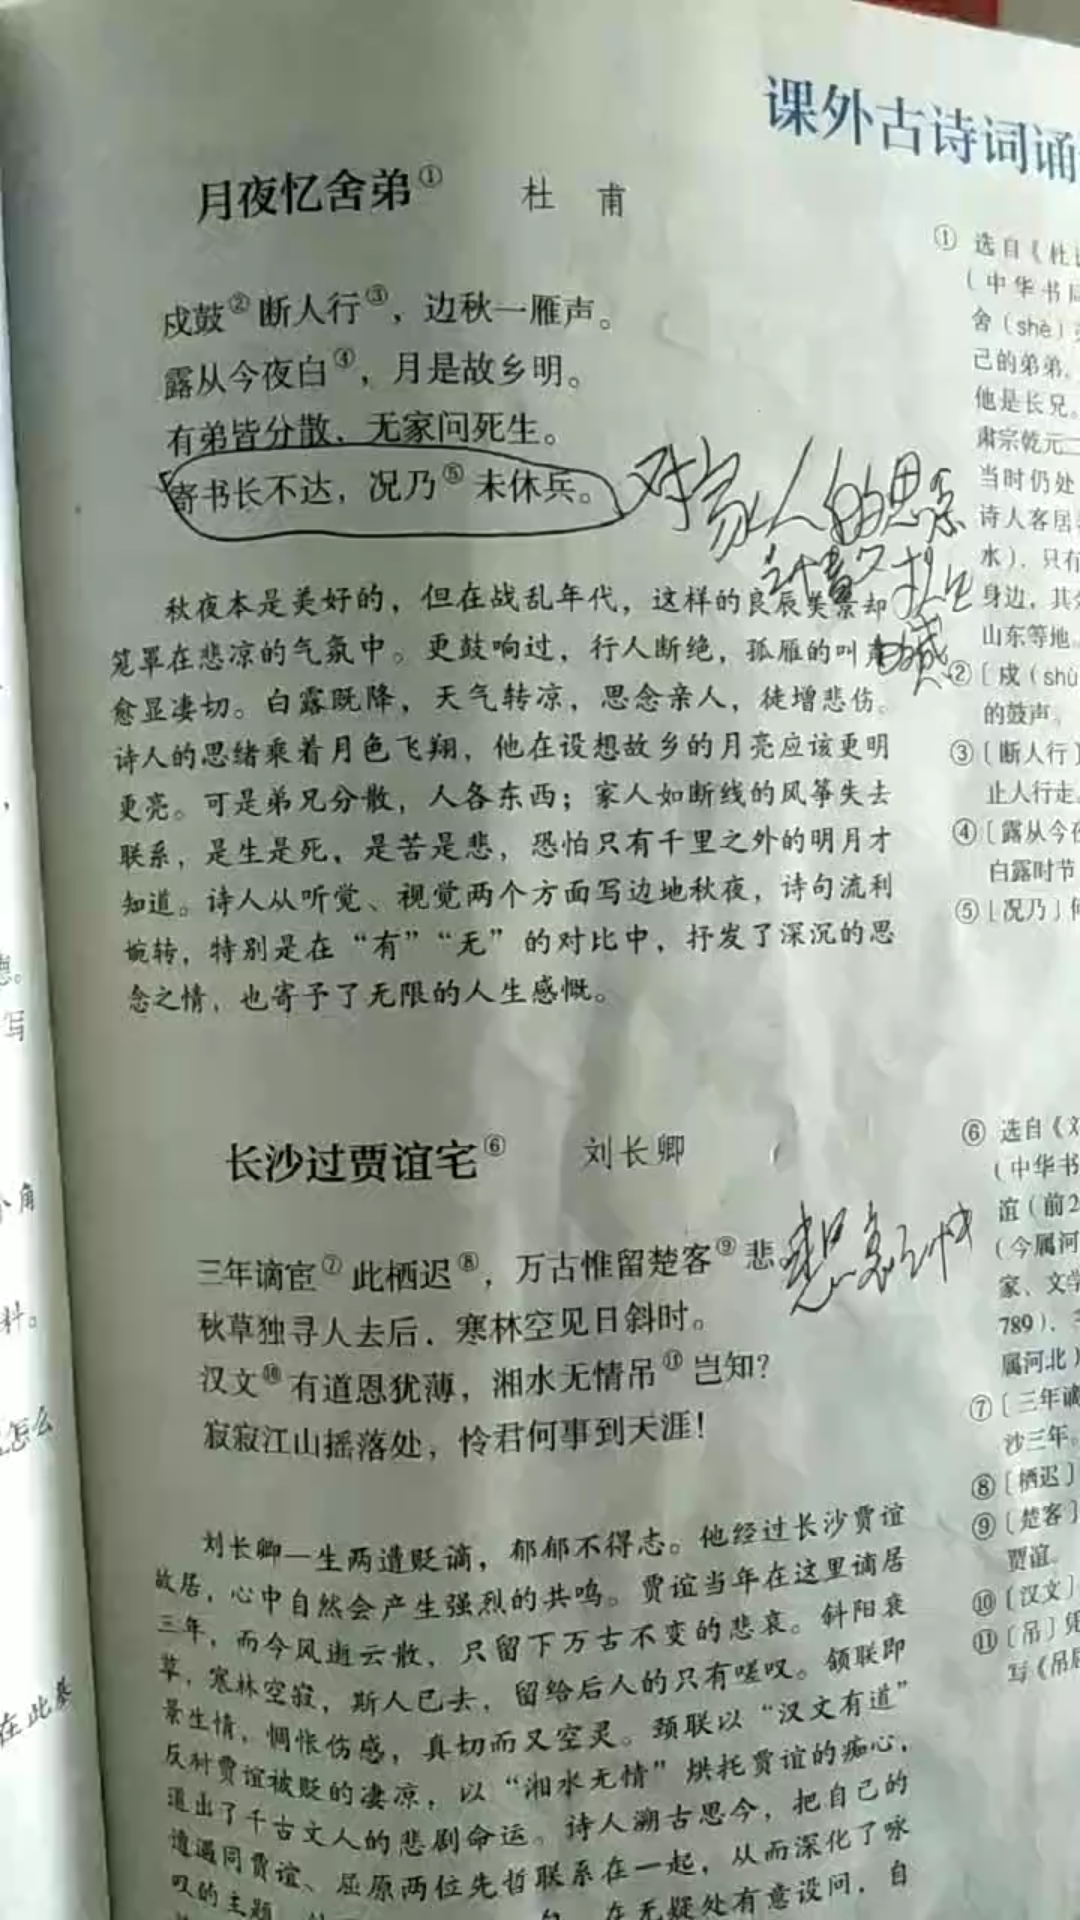 课外古诗词诵
月夜忆舍弟① 杜 甫
戍鼓②断人行③，边秋一雁声。
露从今夜白④，月是故乡明。
有弟皆分散，无家问死生。
寄书长不达，况乃⑤未休兵。
对家人的思念
秋夜本是美好的，但在战乱年代，这样的良辰美景却
笼罩在悲凉的气氛中。更鼓响过，行人断绝，孤雁的叫
愈显凄切。白露既降，天气转凉，思念亲人，徒增悲伤。
诗人的思绪乘着月色飞翔，他在设想故乡的月亮应该更明
更亮。可是弟兄分散，人各东西；家人如断线的风筝失去
联系，是生是死，是苦是悲，恐怕只有千里之外的明月才
知道。诗人从听觉、视觉两个方面写边地秋夜，诗句流利
婉转，特别是在“有”“无”的对比中，抒发了深沉的思
念之情，也寄予了无限的人生感慨。
长沙过贾谊宅⑥ 刘长卿
三年谪宦⑦此栖迟⑧，万古惟留楚客⑨悲。
秋草独寻人去后，寒林空见日斜时。
汉文⑩有道恩犹薄，湘水无情吊⑪岂知？
寂寂江山摇落处，怜君何事到天涯！
刘长卿一生两遭贬谪，郁郁不得志。他经过长沙贾谊
故居，心中自然会产生强烈的共鸣。贾谊当年在这里谪居
三年，而今风逝云散，只留下万古不变的悲哀。斜阳衰
草，寒林空寂，斯人已去，留给后人的只有嗟叹。颔联即
景生情，惆怅伤感，真切而又空灵。颈联以“汉文有道”
反衬贾谊被贬的凄凉，以“湘水无情”烘托贾谊的痴心，
道出了千古文人的悲剧命运。诗人溯古思今，把自己的
遭遇同贾谊、屈原两位先哲联系在一起，从而深化了咏
叹的主题
在无疑处有意设问，自
① 选自《杜
（中华书局
舍（shè）
己的弟弟，
他是长兄。
肃宗乾元二
当时仍处
诗人客居
水），只有
身边，其
山东等地。
②〔戍（shù
的鼓声。
③〔断人行〕
止人行走。
④〔露从今夜
白露时节
⑤〔况乃〕何
⑥ 选自《刘
（中华书
谊（前2
（今属河
家、文学
789），
属河北）
⑦〔三年谪
沙三年。
⑧〔栖迟〕
⑨〔楚客〕
贾谊。
⑩〔汉文〕
⑪〔吊〕凭
写《吊屈
写
个角
料。
怎么
在此